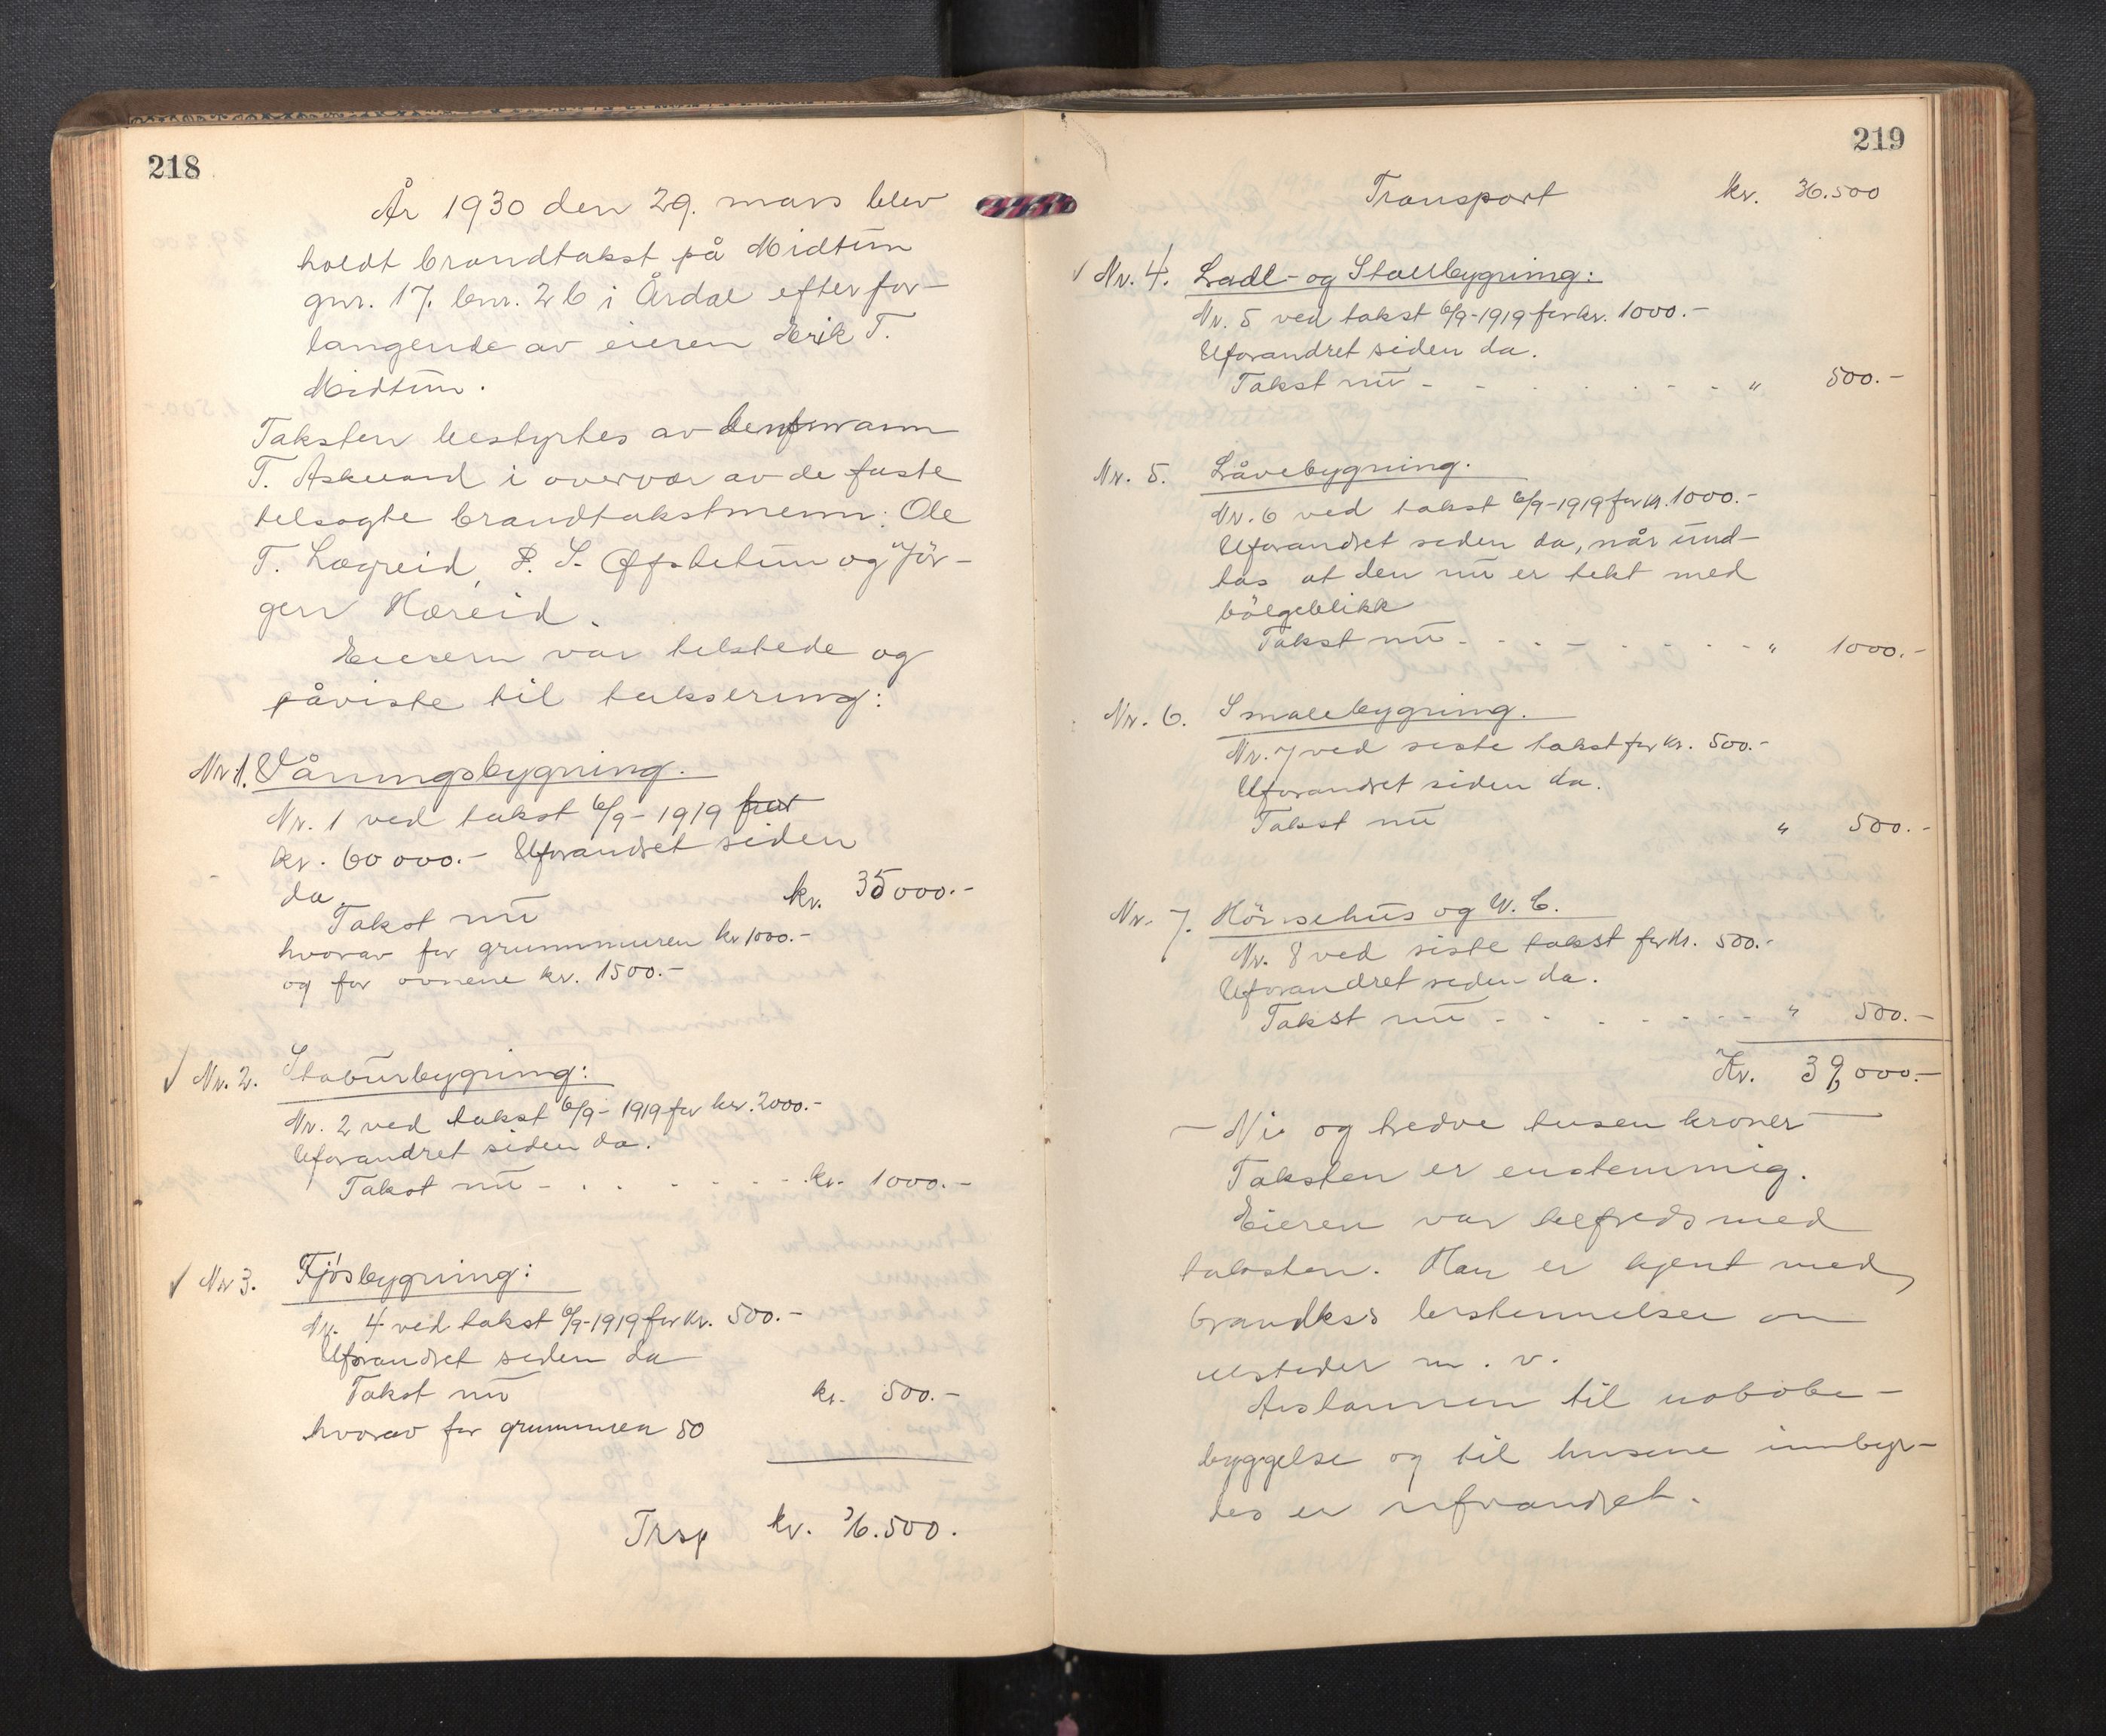 218
År 1930 den 29. mars blev
holdt brandtakst på Midtun
gnr. 17. bnr. 26 i Årdal efter for-
langende av eieren Erik T.
Midtun.
Taksten bestyrtes av
T. Askvand i overvær av de faste
telsagte brandtakstmenn: Ole
T. Lægreid, P. S. Øfstetun og Jör-
gen Hæreid.
Eieren var telstede og
påviste til taksering:
Nr. 1. Våningsbygning.
Nr. 1 ved takst 6/9-1919 for
kr. 60000.- Uforandret siden
da.
Takst nu kr. 35000.-
hvorav for grunnmuren kr 1000.-
og for ovnene kr. 1500.-
√ Nr. 2. Stabursbygning:
Nr. 2 ved takst 6/9-1919 for kr. 2000.-
Uforandret siden da.
Takst nu - . . - - - - kr. 1000.-
√ Nr 3. Fjösbygning:
Nr. 4 ved takst 6/9-1919 for kr. 500.-
Uforandret siden da
Takst nu kr. 500.-
hvorav for grunnmuren 50
Trsp kr. 36.500.
219
Transport kr. 36.500
√ Nr. 4. Ladl- og Stallbygning:
Nr. 5 ved takst 6/9-1919 for kr. 1000.-
Uforandret siden da.
Takst nu - - - . . - - - " 500.-
Nr. 5. Låvebygning.
Nr. 6 ved takst 6/9-1919 for kr. 1000.-
Uforandret siden da, når und-
tas at den nu er tekt med
bölgeblikk
Takst nu - - - - - . . - - " 1000.-
Nr. 6. Smalebygning.
Nr. 7 ved siste takst for kr. 500.-
Uforandret siden da.
Takst nu " 500.-
Nr. 7. Hönsehus og W. C.
Nr. 8 ved siste takst for kr. 500.-
Uforandret siden da.
Takst nu - - . . - - - " 500.-
Kr. 39,000.-
- Ni og tredve tusen kroner -
Taksten er enstemmig.
Eieren var telfreds med
taksten. Han er kjent med
brandkss bestemmelser om
ilsteder m. v.
Avstannen til nabobe-
byggelse og til husene innbyr-
des er uforandret.